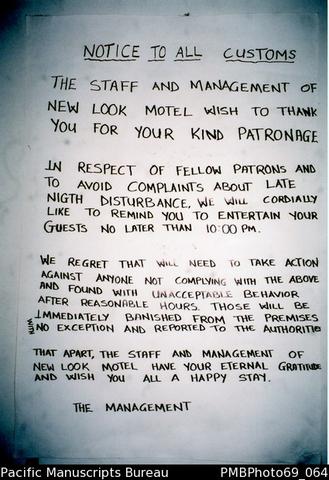 NOTICE TO ALL CUSTOMS
THE STAFF AND MANAGEMENT OF
NEW LOOK MOTEL WISH TO THANK
YOU FOR YOUR KIND PATRONAGE
IN RESPECT OF FELLOW PATRONS AND
TO AVOID COMPLAINTS ABOUT LATE
NIGTH DISTURBANCE, WE WILL CORDIALLY
LIKE TO REMIND YOU TO ENTERTAIN YOUR
GUESTS NO LATER THAN 10:00 PM.
WE REGRET THAT WILL NEED TO TAKE ACTION
AGAINST ANYONE NOT COMPLYING WITH THE ABOVE
AND FOUND WITH UNACCEPTABLE BEHAVIOR
AFTER REASONABLE HOURS. THOSE WILL BE
IMMEDIATELY BANISHED FROM THE PREMISES
WITH NO EXCEPTION AND REPORTED TO THE AUTHORITIE
THAT APART, THE STAFF AND MANAGEMENT OF
NEW LOOK MOTEL HAVE YOUR ETERNAL GRATITUDE
AND WISH YOU ALL A HAPPY STAY.
THE MANAGEMENT
Pacific Manuscripts Bureau PMBPhoto69_064